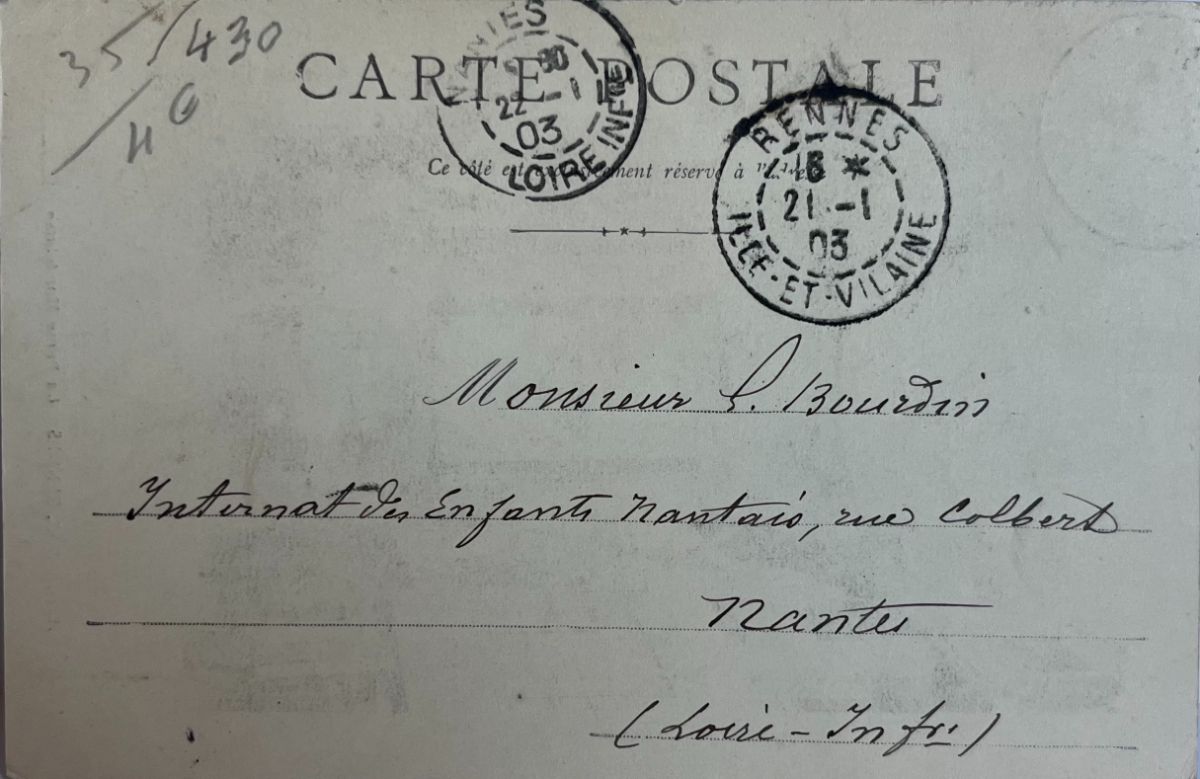 35/430
/46
CARTE POSTALE
NTES
30
22 -1
03
LOIRE INFRE
Ce côté est exclusivement réservé à l'adresse
RENNES
18 *
21 -1
03
ILLE-ET-VILAINE
Monsieur L. Bourdin
Internat des Enfants Nantais, rue Colbert
Nantes
(Loire-Infre)